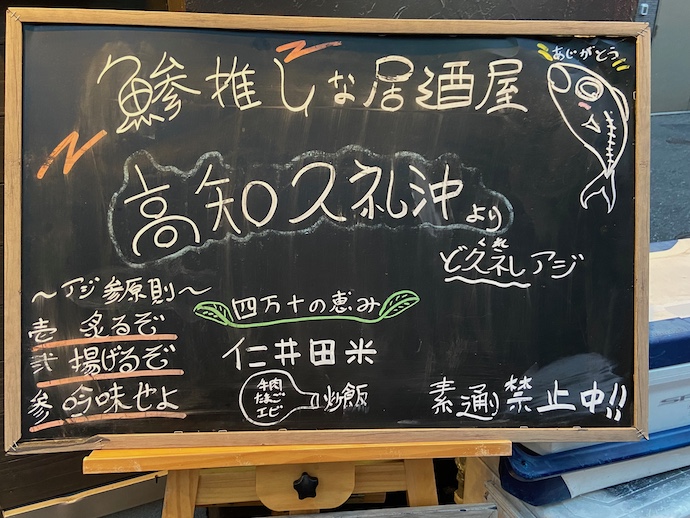 あじがとう
鯵推しな居酒屋
高知久礼沖より
ど久礼アジ
くれ
〜アジ参原則〜
壱 炙るぞ
弐 揚げるぞ
参 吟味せよ
四万十の恵み
仁井田米
牛肉
たまご
エビ
炒飯
素通り禁止中!!